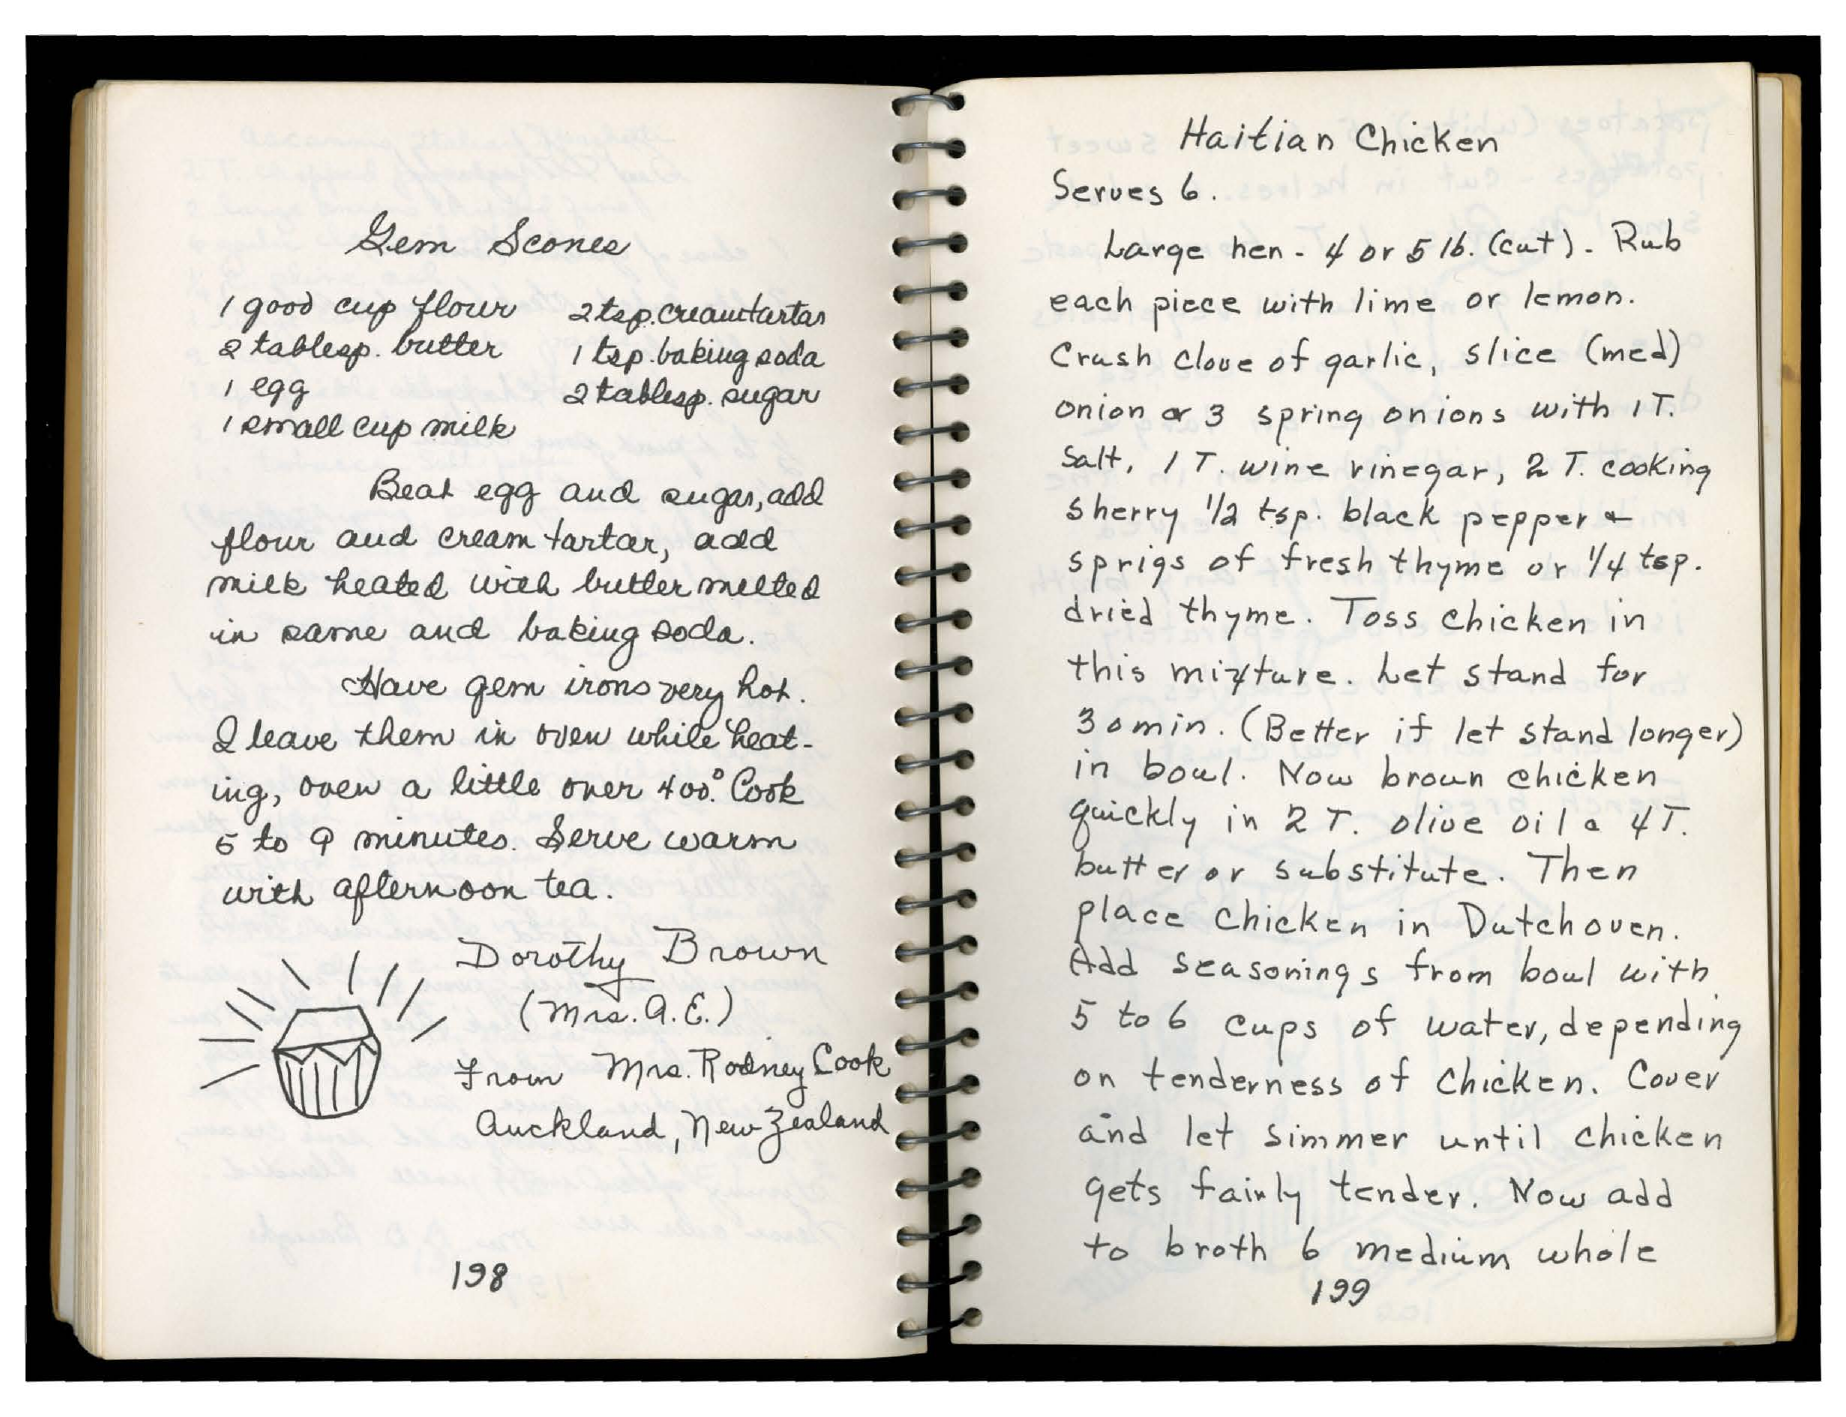 Gem Scones
1 good cup flour 2 tsp. creamtartar
2 tablesp. butter 1 tsp. baking soda
1 egg 2 tablesp. sugar
1 small cup milk
Beat egg and sugar, add
flour and cream tartar, add
milk heated with butter melted
in same and baking soda.
Have gem irons very hot.
I leave them in oven while heat-
ing, oven a little over 400°. Cook
5 to 9 minutes. Serve warm
with afternoon tea.
Dorothy Brown
(Mrs. A.E.)
From Mrs. Rodney Cook
Auckland, New Zealand
198
Haitian Chicken
Serves 6.
Large hen - 4 or 5 lb. (cut). Rub
each piece with lime or lemon.
Crush clove of garlic, slice (med)
onion or 3 spring onions with 1 T.
Salt, 1 T. wine vinegar, 2 T. cooking
sherry 1/2 tsp. black pepper &
sprigs of fresh thyme or 1/4 tsp.
dried thyme. Toss chicken in
this mixture. Let stand for
30 min. (Better if let stand longer)
in bowl. Now brown chicken
quickly in 2 T. olive oil & 4 T.
butter or substitute. Then
place chicken in Dutchoven.
Add seasonings from bowl with
5 to 6 cups of water, depending
on tenderness of chicken. Cover
and let simmer until chicken
gets fairly tender. Now add
to broth 6 medium whole
199